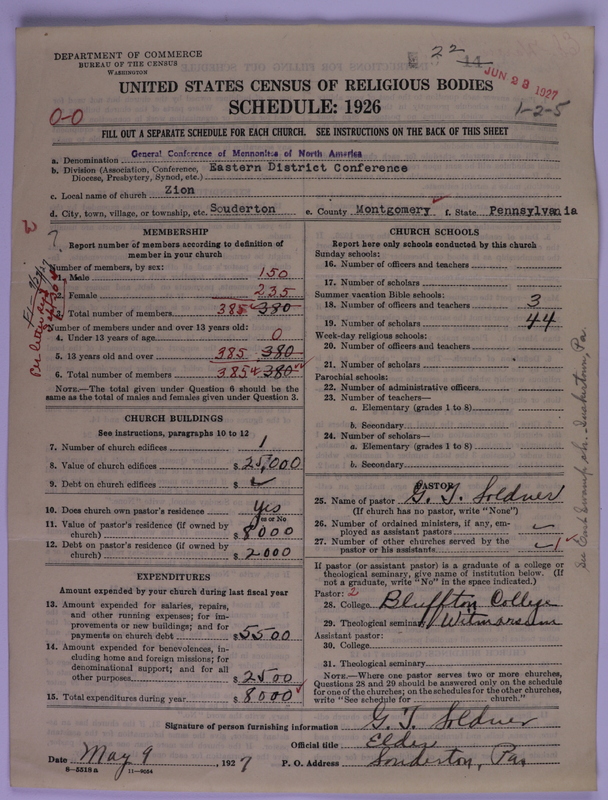 DEPARTMENT OF COMMERCE
BUREAU OF THE CENSUS
WASHINGTON
22 14
JUN 23 1927
1-2-5
0-0
UNITED STATES CENSUS OF RELIGIOUS BODIES
SCHEDULE: 1926
FILL OUT A SEPARATE SCHEDULE FOR EACH CHURCH. SEE INSTRUCTIONS ON THE BACK OF THIS SHEET
a. Denomination General Conference of Mennonites of North America
b. Division (Association, Conference, Diocese, Presbytery, Synod, etc.) Eastern District Conference
c. Local name of church Zion
d. City, town, village, or township, etc. Souderton e. County Montgomery f. State Pennsylvania
MEMBERSHIP
Report number of members according to definition of
member in your church
Number of members, by sex:
1. Male 150
2. Female 235
3. Total number of members 385 380
Number of members under and over 13 years old:
4. Under 13 years of age 0
5. 13 years old and over 385 380
6. Total number of members 385 380
NOTE.—The total given under Question 6 should be the
same as the total of males and females given under Question 3.
CHURCH BUILDINGS
See instructions, paragraphs 10 to 12
7. Number of church edifices 1
8. Value of church edifices $ 25,000
9. Debt on church edifices $
10. Does church own pastor's residence yes
Yes or No
11. Value of pastor's residence (if owned by
church) $ 8000
12. Debt on pastor's residence (if owned by
church) $ 2000
EXPENDITURES
Amount expended by your church during last fiscal year
13. Amount expended for salaries, repairs,
and other running expenses; for im-
provements or new buildings; and for
payments on church debt $ 5500
14. Amount expended for benevolences, in-
cluding home and foreign missions; for
denominational support; and for all
other purposes $ 2500
15. Total expenditures during year $ 8000
CHURCH SCHOOLS
Report here only schools conducted by this church
Sunday schools:
16. Number of officers and teachers
17. Number of scholars
Summer vacation Bible schools:
18. Number of officers and teachers 3
19. Number of scholars 44
Week-day religious schools:
20. Number of officers and teachers
21. Number of scholars
Parochial schools:
22. Number of administrative officers
23. Number of teachers—
a. Elementary (grades 1 to 8)
b. Secondary
24. Number of scholars—
a. Elementary (grades 1 to 8)
b. Secondary
PASTOR
25. Name of pastor G. T. Soldner
(If church has no pastor, write "None")
26. Number of ordained ministers, if any, em-
ployed as assistant pastors
27. Number of other churches served by the
pastor or his assistants 1
If pastor (or assistant pastor) is a graduate of a college or
theological seminary, give name of institution below. (If
not a graduate, write "No" in the space indicated.)
Pastor: 2
28. College Bluffton College
29. Theological seminary Witmarsum
Assistant pastor:
30. College
31. Theological seminary
NOTE.—Where one pastor serves two or more churches,
Questions 28 and 29 should be answered only on the schedule
for one of the churches; on the schedules for the other churches,
write "See schedule for church."
Signature of person furnishing information G. T. Soldner
Official title Elder
Date May 9, 1927 P. O. Address Souderton, Pa
8-5518a 11-9064